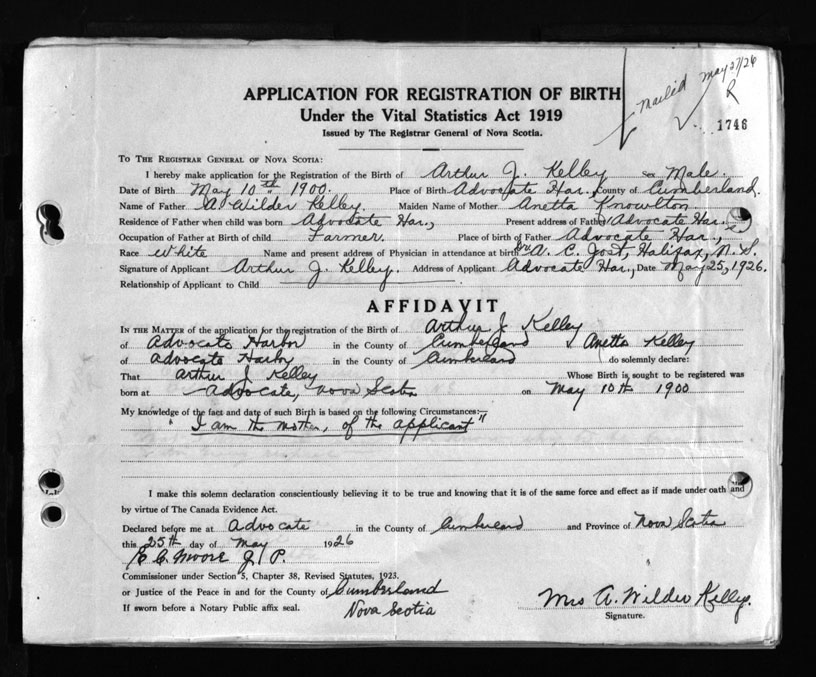 mailed May 27/26
R
1746
APPLICATION FOR REGISTRATION OF BIRTH
Under the Vital Statistics Act 1919
Issued by The Registrar General of Nova Scotia.
To The Registrar General of Nova Scotia:
I hereby make application for the Registration of the Birth of Arthur J. Kelley Sex Male.
Date of Birth May 10th 1900. Place of Birth Advocate Har., County of Cumberland.
Name of Father A. Wilder Kelley. Maiden Name of Mother Anetta Knowlton
Residence of Father when child was born Advocate Har., Present address of Father Advocate Har.
Occupation of Father at Birth of child Farmer. Place of birth of Father Advocate Har.,
Race White Name and present address of Physician in attendance at birth Dr. A. C. Jost, Halifax, N.S.
Signature of Applicant Arthur J. Kelley. Address of Applicant Advocate Har., Date May 25, 1926.
Relationship of Applicant to Child
AFFIDAVIT
In the Matter of the application for the registration of the Birth of Arthur J. Kelley
of Advocate Harbor in the County of Cumberland I Anetta Kelley
of Advocate Harbor in the County of Cumberland do solemnly declare:
That Arthur J Kelley Whose Birth is sought to be registered was
born at Advocate, Nova Scotia on May 10th 1900
My knowledge of the fact and date of such Birth is based on the following Circumstances:—
"I am the mother, of the applicant"
I make this solemn declaration conscientiously believing it to be true and knowing that it is of the same force and effect as if made under oath and
by virtue of The Canada Evidence Act.
Declared before me at Advocate in the County of Cumberland and Province of Nova Scotia
this 25th day of May 1926
E C. Moore J. P.
Commissioner under Section 5, Chapter 38, Revised Statutes, 1923.
or Justice of the Peace in and for the County of Cumberland
If sworn before a Notary Public affix seal. Nova Scotia
Mrs A. Wilder Kelley.
Signature.